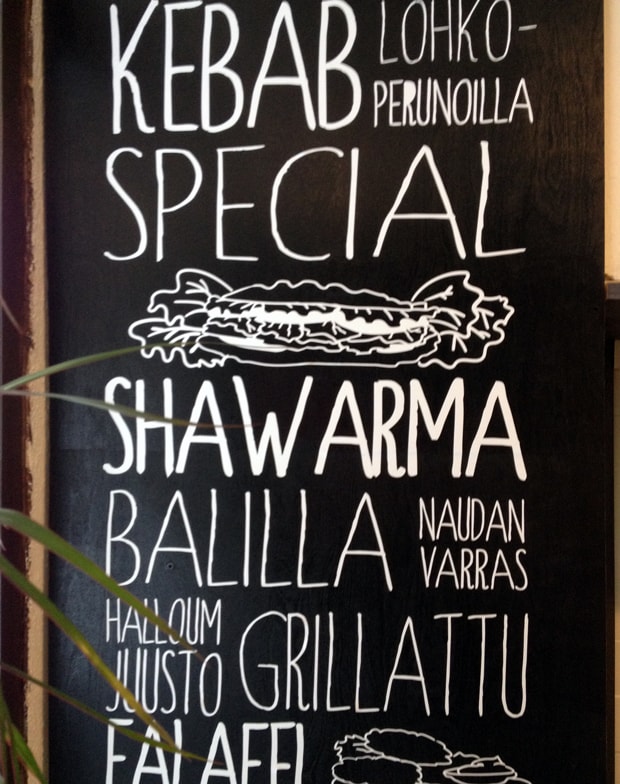 KEBAB LOHKO-
PERUNOILLA
SPECIAL
SHAWARMA
BALILLA NAUDAN
VARRAS
HALLOUM
JUUSTO GRILLATTU
FALAFEL